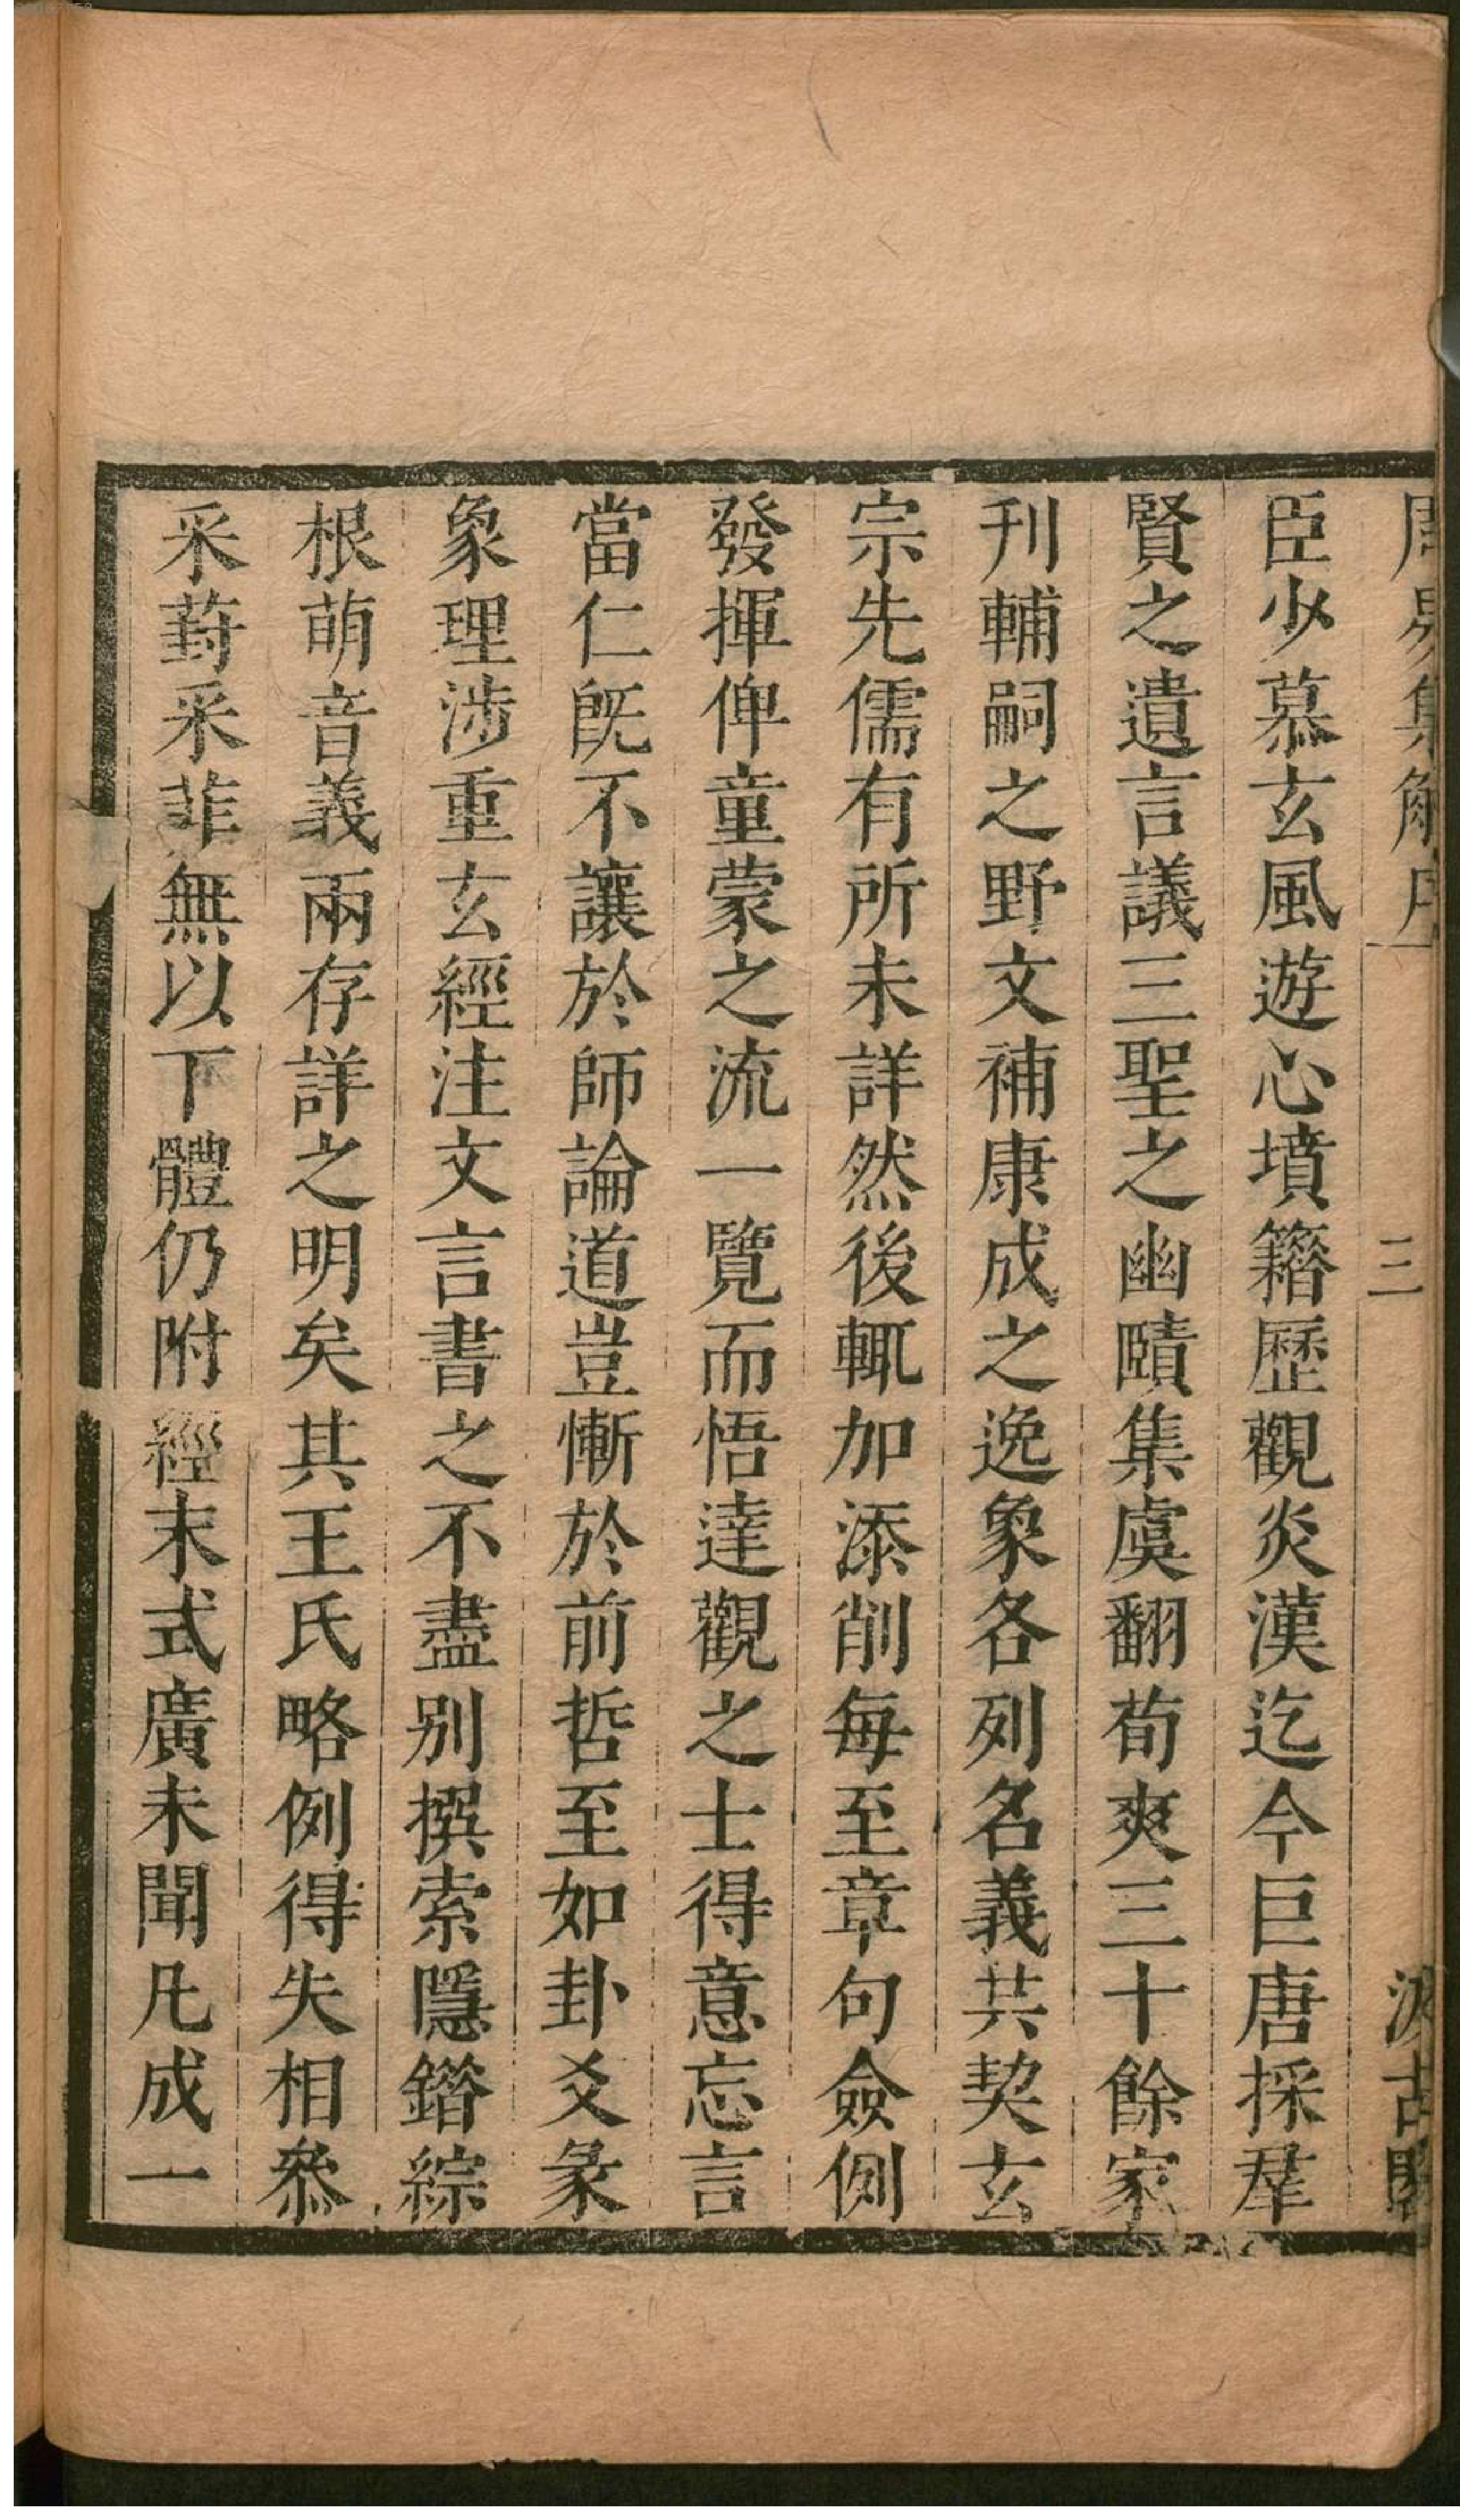 周易集解序 三 汲古閣
臣少慕玄風遊心墳籍歷觀炎漢迄今巨唐採羣
賢之遺言議三聖之幽賾集虞翻荀爽三十餘家
刋輔嗣之野文補康成之逸象各列名義共契玄
宗先儒有所未詳然後輒加添削每至章句僉例
發揮俾童蒙之流一覽而悟達觀之士得意忘言
當仁旣不讓於師論道豈慚於前哲至如卦爻彖
象理涉重玄經注文言書之不盡別撰索隱錯綜
根萌音義兩存詳之明矣其王氏略例得失相叅
采葑采菲無以下體仍附經末式廣未聞凡成一